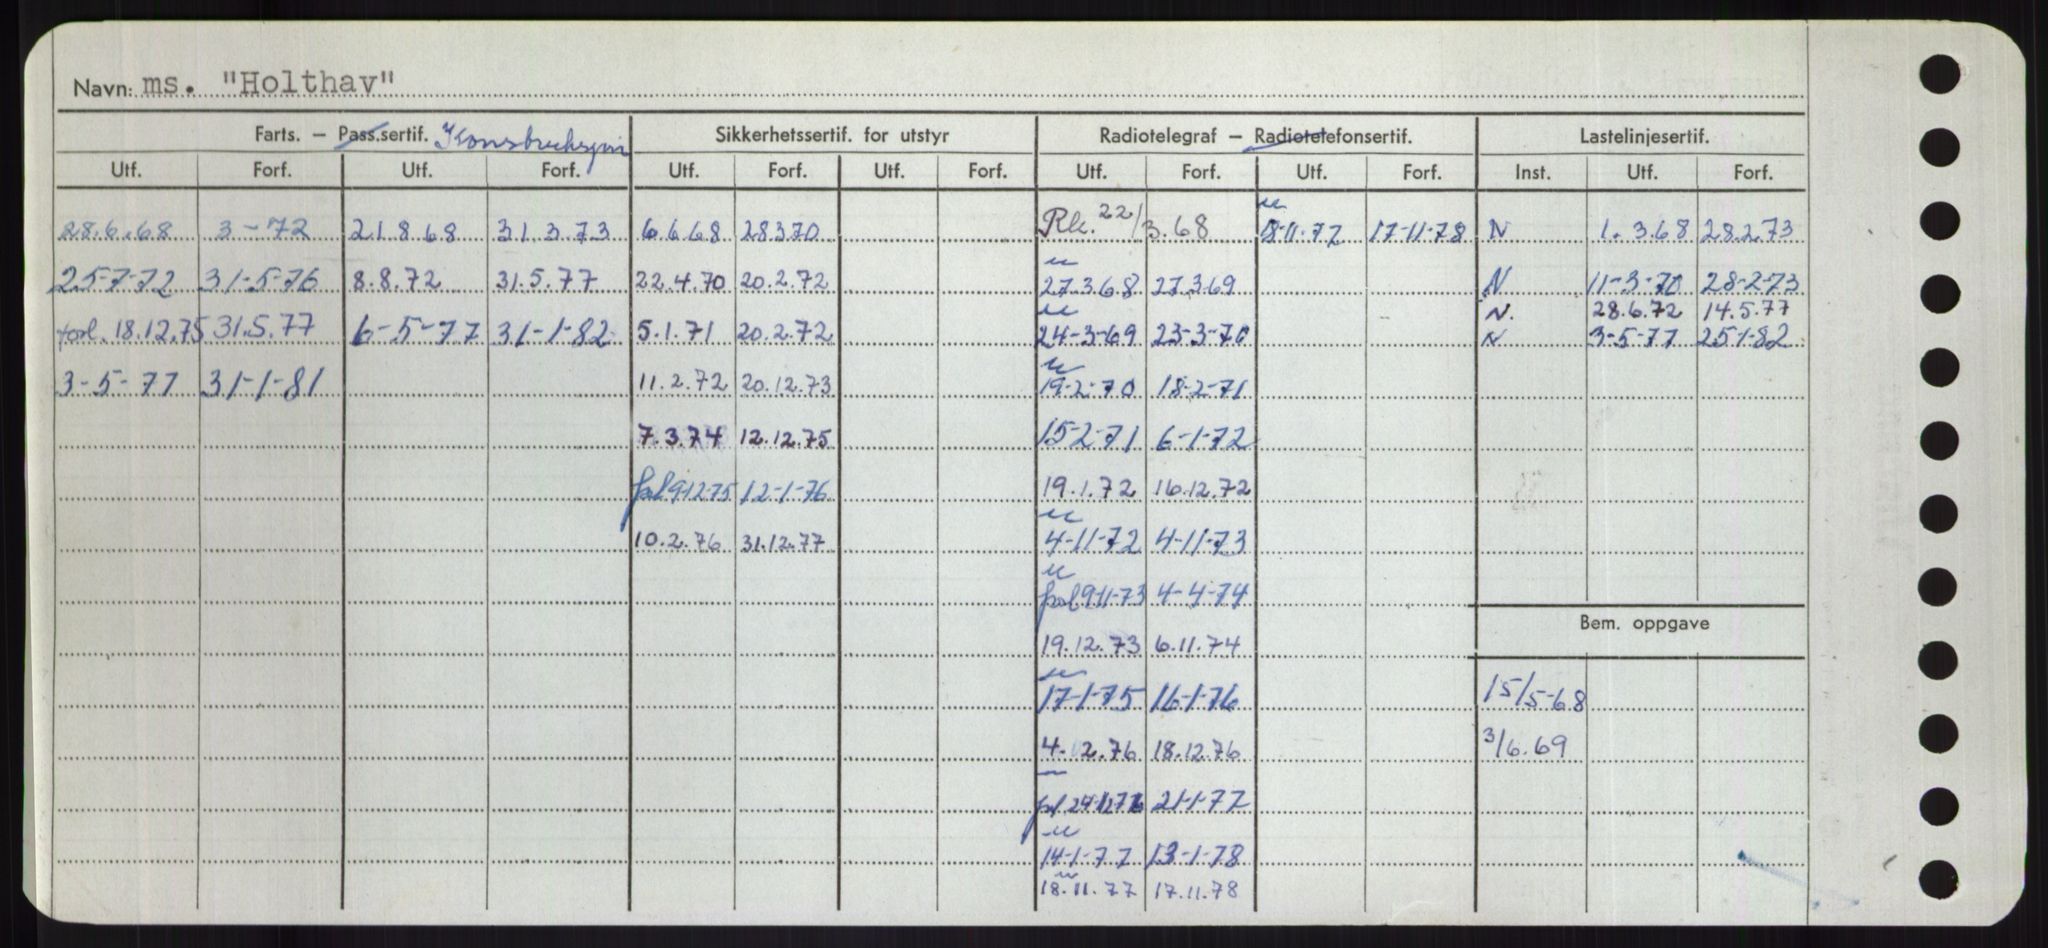 Navn: ms. "Holthav"
Farts. – Pass.sertif. Sikkerhetssertif. for utstyr Radiotelegraf – Radiotelefonsertif. Lastelinjesertif.
Utf. Forf. Utf. Forf. Utf. Forf. Utf. Forf. Utf. Forf. Utf. Forf. Inst. Utf. Forf.
28.6.68 3-72 21 8 68 31.3.73 6.6.68 28370 Rk. 22/3.68 17-11-78 N 1.3.68 28.2.73
25-7-72 31-5-76 8.8.72 31.5.77 22.4.70 20.2.72 27.3.68 27.3.69 N 11-3-70 28-2-73
N. 28.6.72 14.5.77
forl. 18.12.75 31.5.77 6-5-77 31-1-82 5.1.71 20.2.72 24-3-69 23-3-70 N 3-5-77 25-1-82
3-5-77 31-1-81 11.2.72 20.12.73 19-2-70 18-2-71
7.3.74 12.12.75 15-2-71 6-1-72
forl 9-12-75 12-1-76 19.1.72 16.12.72
10.2.76 31.12.77 4-11-72 4-11-73
forl 9-11-73 4-4-74
Bem. oppgave
19.12.73 6.11.74
17-1-75 16-1-76 15/5-68
4.12.76 18.12.76 3/6.69
21-1-77
14-1-77 13-1-78
18.11.77 17.11.78